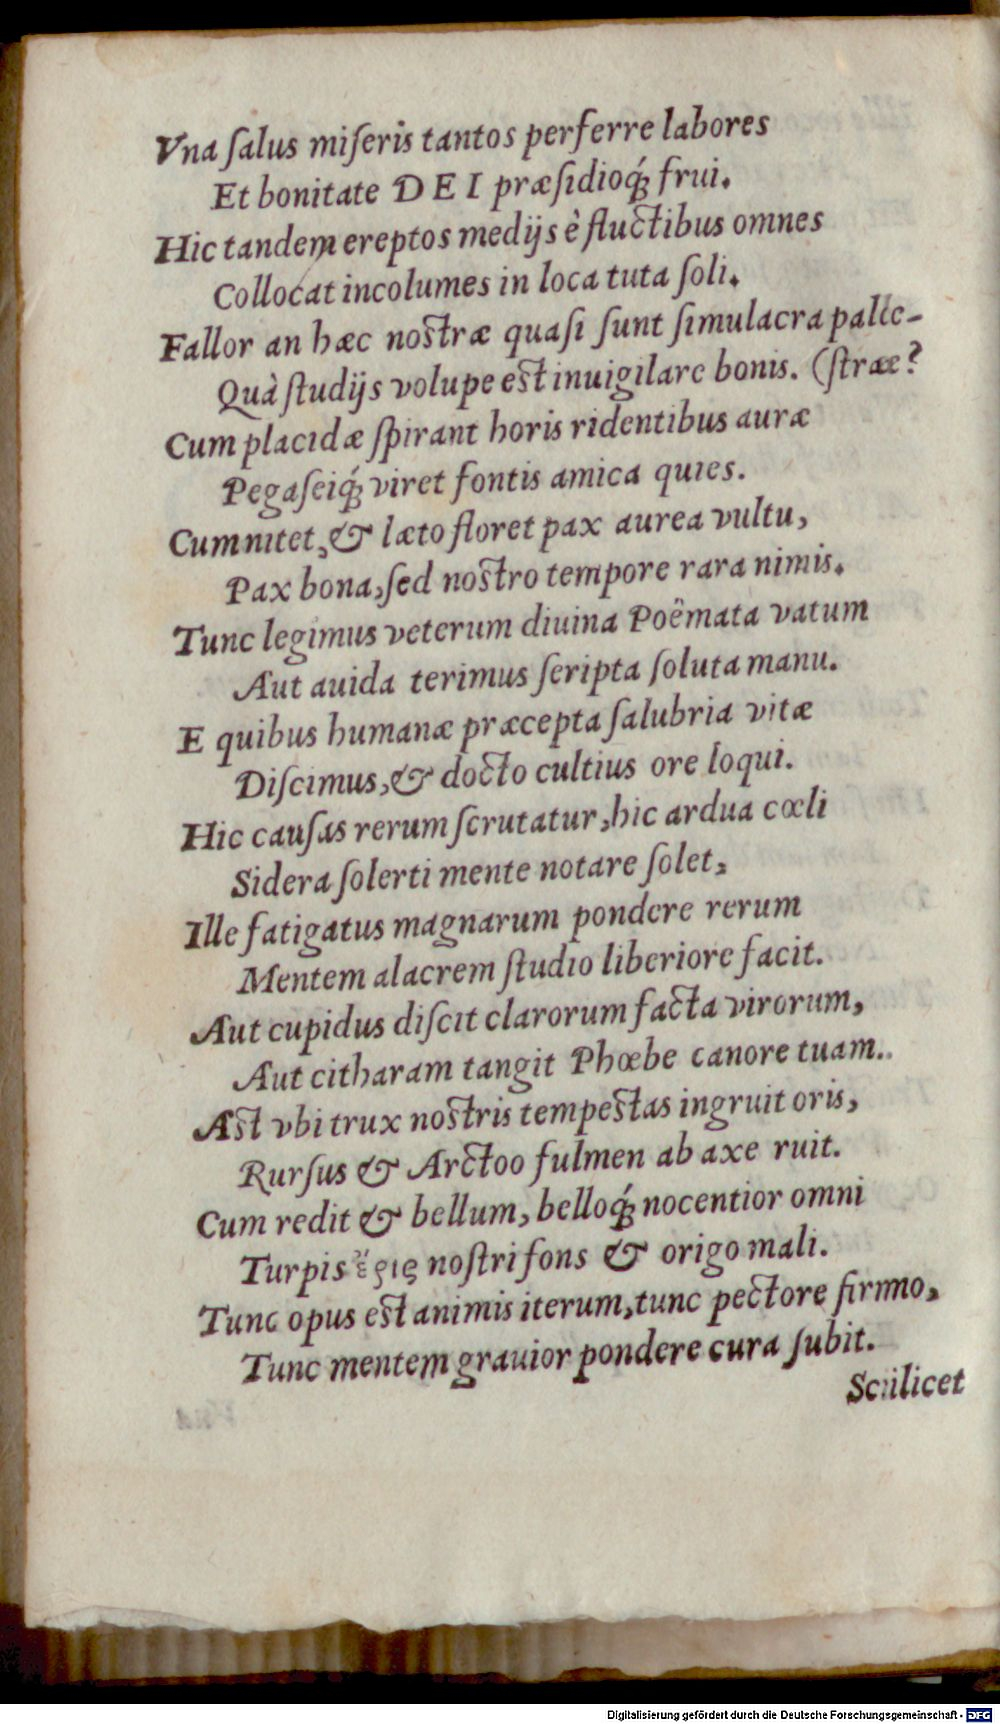 Vna ſalus miſeris tantos perferre labores
Et bonitate DEI præſidioq́; frui.
Hic tandem ereptos medijs è fluctibus omnes
Collocat incolumes in loca tuta ſoli.
Fallor an hæc nostræ quaſi ſunt ſimulacra palle-
Quà ſtudijs volupe est inuigilare bonis. (ſtræ?
Cum placidæ ſpirant horis ridentibus auræ
Pegaſeiq́; viret fontis amica quies.
Cum nitet, & læto floret pax aurea vultu,
Pax bona, ſed nostro tempore rara nimis.
Tunc legimus veterum diuina Poëmata vatum
Aut auida terimus ſcripta ſoluta manu.
E quibus humanæ præcepta ſalubria vitæ
Diſcimus, & docto cultius ore loqui.
Hic cauſas rerum ſcrutatur, hic ardua cœli
Sidera ſolerti mente notare ſolet,
Ille fatigatus magnarum pondere rerum
Mentem alacrem ſtudio liberiore facit.
Aut cupidus diſcit clarorum facta virorum,
Aut citharam tangit Phœbe canore tuam.
Ast vbi trux nostris tempestas ingruit oris,
Rurſus & Arctoo fulmen ab axe ruit.
Cum redit & bellum, belloq́; nocentior omni
Turpis ἔρις noſtri fons & origo mali.
Tunc opus est animis iterum, tunc pectore firmo,
Tunc mentem grauior pondere cura ſubit.
Scilicet
Digitalisierung gefördert durch die Deutsche Forschungsgemeinschaft - DFG